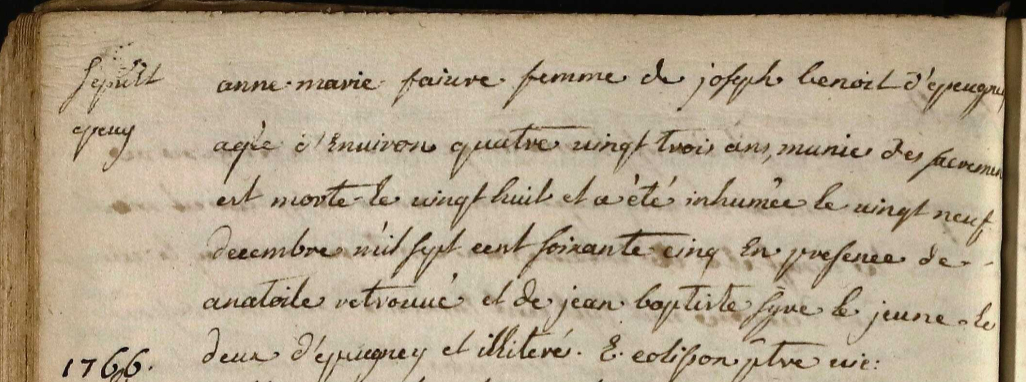 Sepult
epeug
anne marie faivre femme de joseph benoit d'epeugney
agée d'Environ quatre vingt trois ans, munie des sacremen
est morte le vingt huit et a été inhumée le vingt neuf
decembre mil sept cent soixante cinq En presence de
anatoile retrouvé et de jean baptiste fyre le jeune le
deux d'épeugney et illiteré. E. colisson ptre vic:
1766.